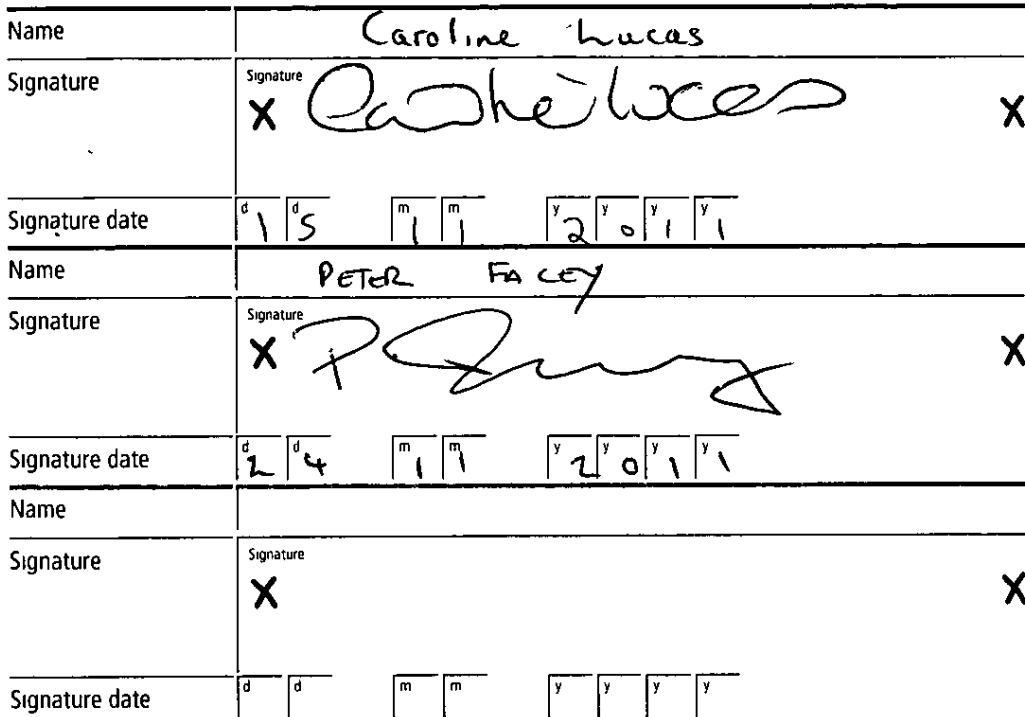 Name Caroline Lucas
Signature Signature
X Caroline Lucas X
Signature date d 1 d 5 m 1 m 1 y 2 y 0 y 1 y 1
Name PETER FACEY
Signature Signature
X P Facey X
Signature date d 2 d 4 m 1 m 1 y 2 y 0 y 1 y 1
Name
Signature Signature
X X
Signature date d d m m y y y y